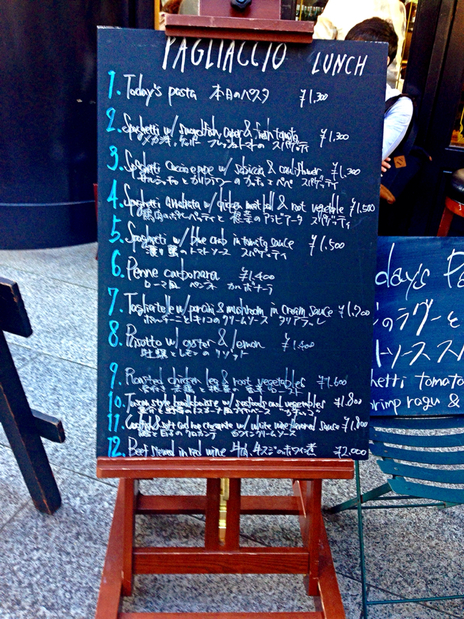 PAGLIACCIO LUNCH
1. Today's pasta 本日のパスタ ¥1,300
2. Spaghetti w/ swordfish, caper & fresh tomato ¥1,300
スパゲッティ
3. Spaghetti Cacio e pepe w/ salsiccia & cauliflower ¥1,300
サルシッチャとカリフラワーのカチョエペペ スパゲッティ
4. Spaghetti Arrabiata w/ chicken meat ball & root vegetable ¥1,500
根菜のアラビアータ スパゲッティ
5. Spaghetti w/ blue crab in tomato sauce ¥1,500
渡り蟹のトマトソース スパゲッティ
6. Penne carbonara ¥1,400
ローマ風 ペンネ カルボナーラ
7. Tagliatelle w/ porcini & mushroom in cream sauce
ポルチーニとキノコのクリームソース タリアテッレ
8. Risotto w/ oyster & lemon ¥1,400
牡蠣とレモンのリゾット
9. Roasted chicken leg & root vegetables ¥1,600
10. w/ seafoods and vegetables ¥1,800
11. w/ white wine sauce ¥1,800
クリームソース
12. Beef stewed in red wine 牛スジの赤ワイン煮 ¥2,000
day's Pa
のラグーと
トソース ス
hetti tomato
hrimp ragu &